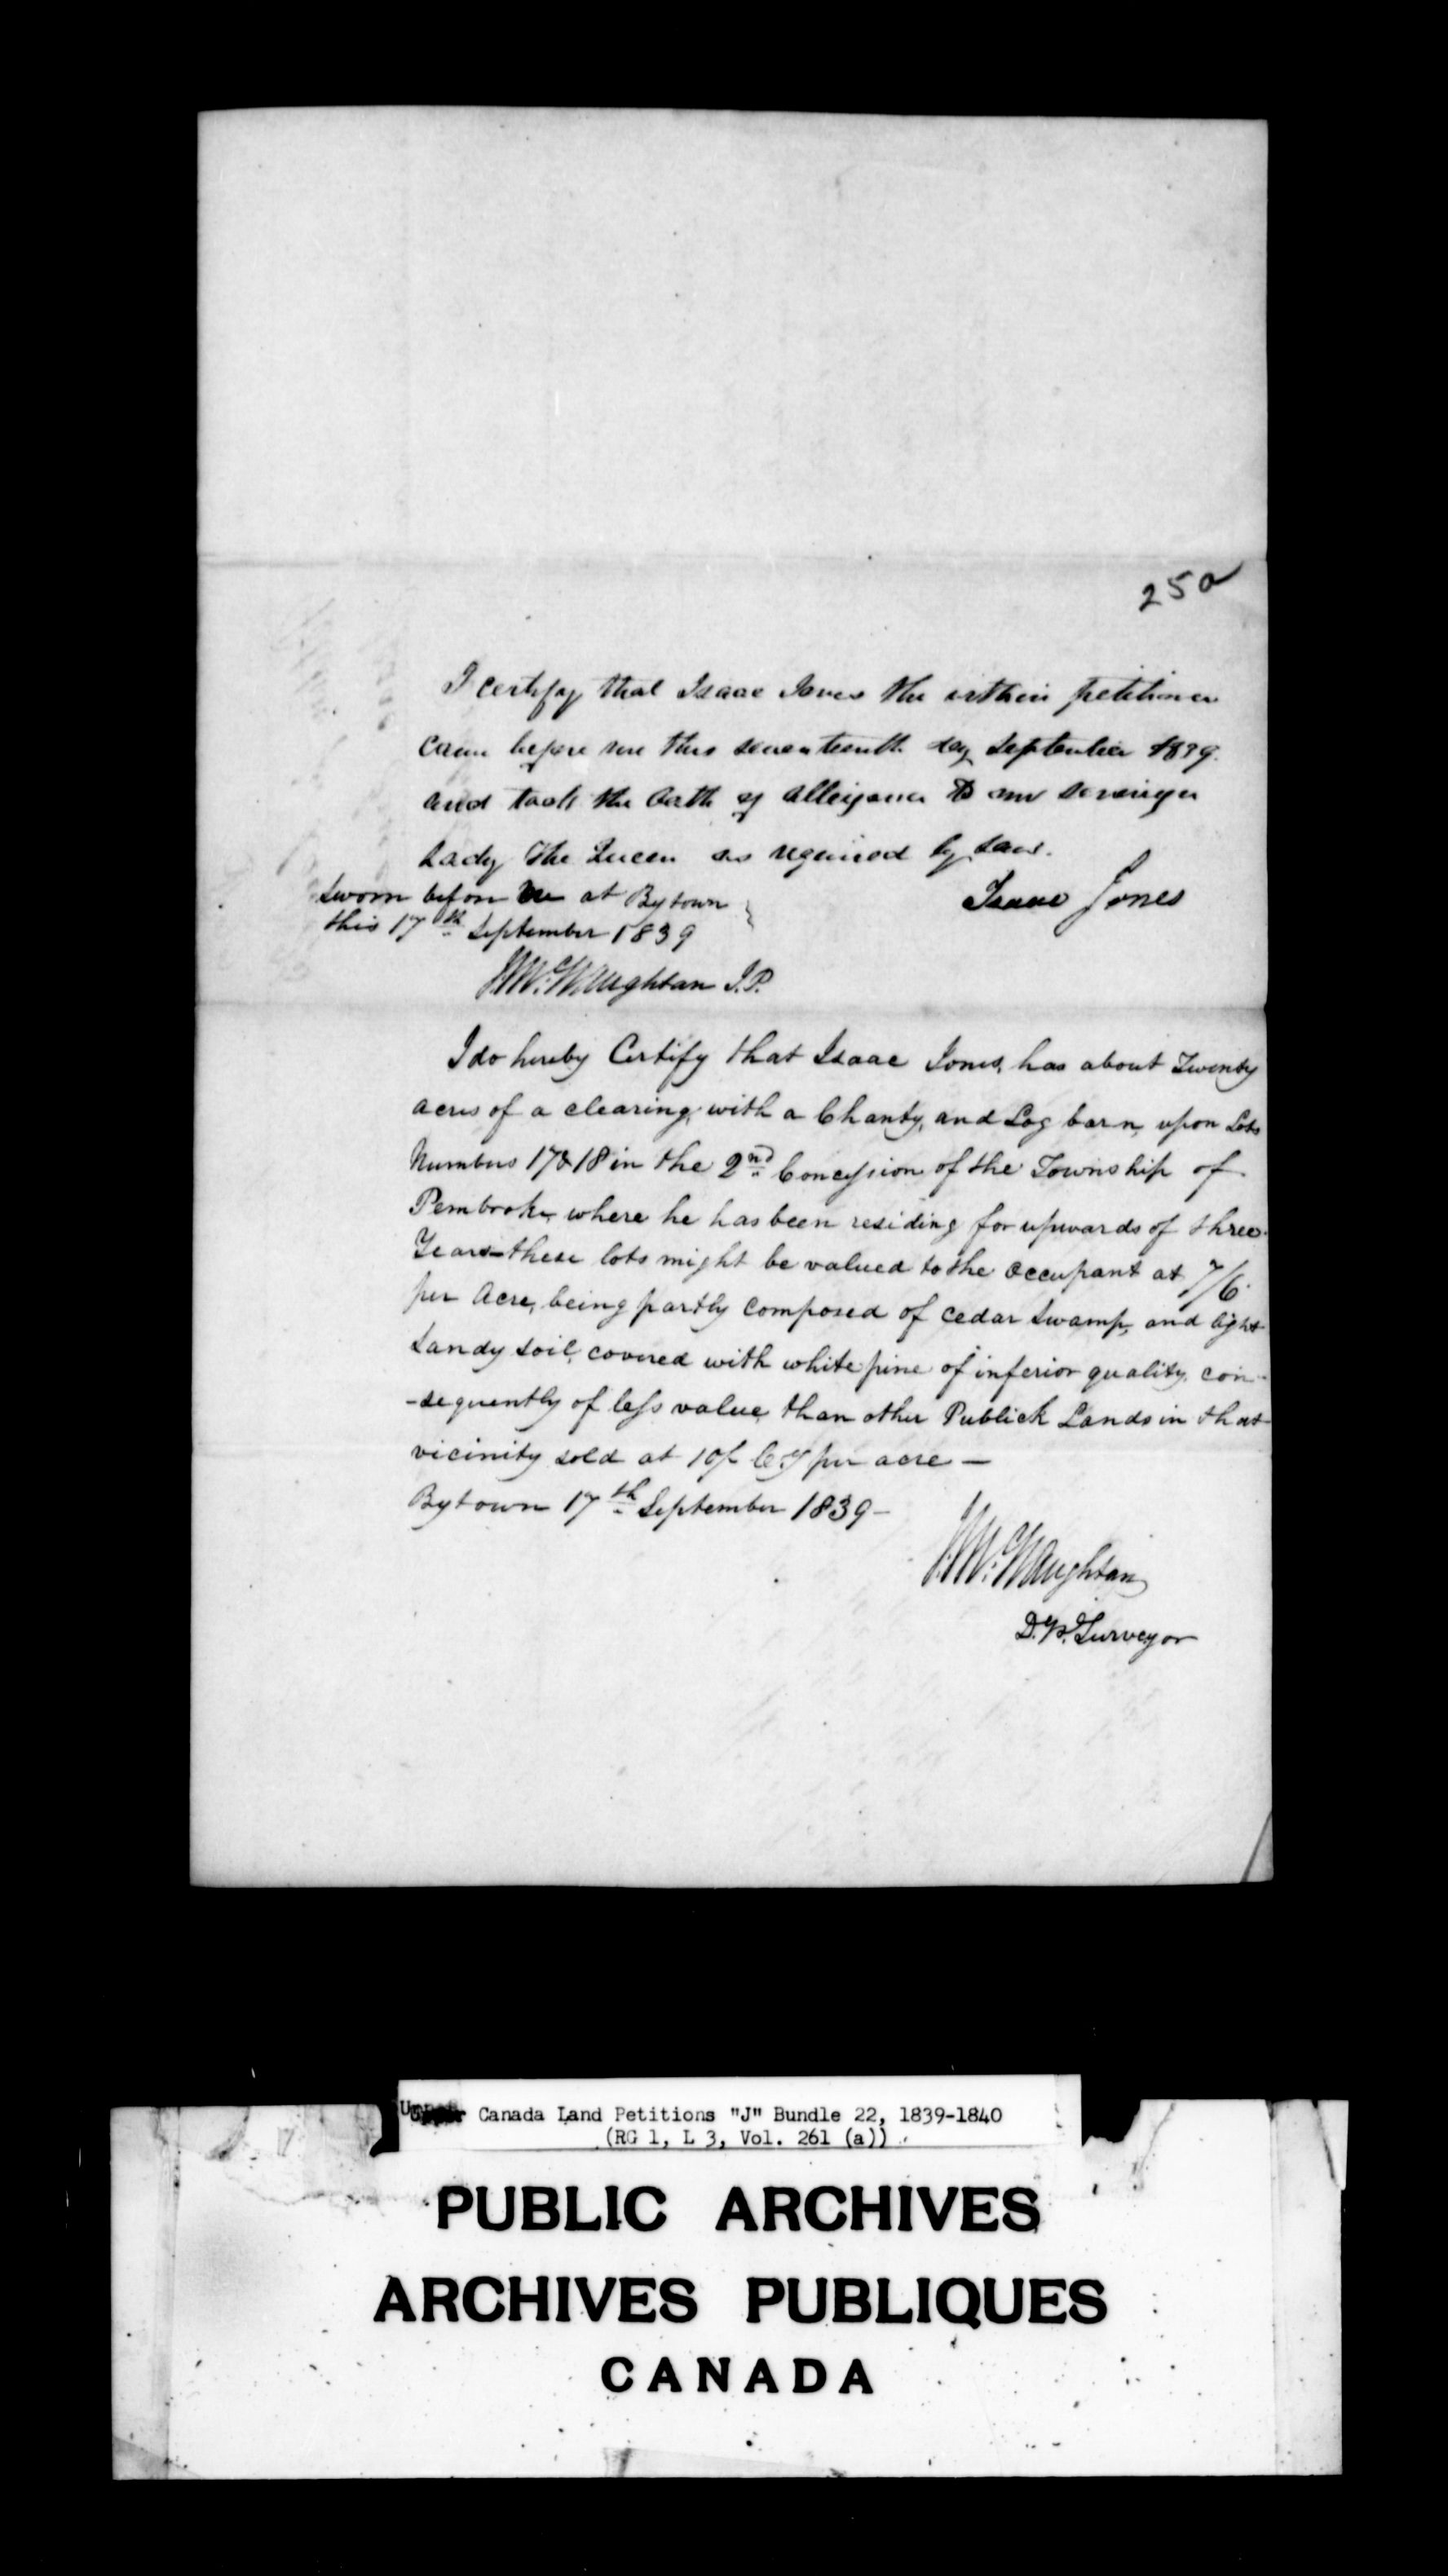 25a
I certify that Isaac Jones the within petitioner
came before me this seventeenth day September 1839.
and took the Oath of Allegiance to our Sovereign
Lady the Queen as required by Law.
Isaac Jones
Sworn before me at Bytown
this 17th September 1839
J. McNaughtan J.P.
I do hereby Certify that Isaac Jones, has about Twenty
acres of a clearing, with a Chanty, and Log barn, upon Lots
Numbers 17 & 18 in the 2nd Concession of the Township of
Pembroke, where he has been residing for upwards of three
Years - these lots might be valued to the Occupant at 7/6
per Acre, being partly composed of cedar swamp, and light
Sandy soil, covered with white pine of inferior quality, con-
-sequently of less value than other Publick Lands in that
vicinity sold at 10/ Cy per acre —
Bytown 17th September 1839 -
J. McNaughtan
D. P. Surveyor
Upper Canada Land Petitions "J" Bundle 22, 1839-1840
(RG 1, L 3, Vol. 261 (a))
PUBLIC ARCHIVES
ARCHIVES PUBLIQUES
CANADA